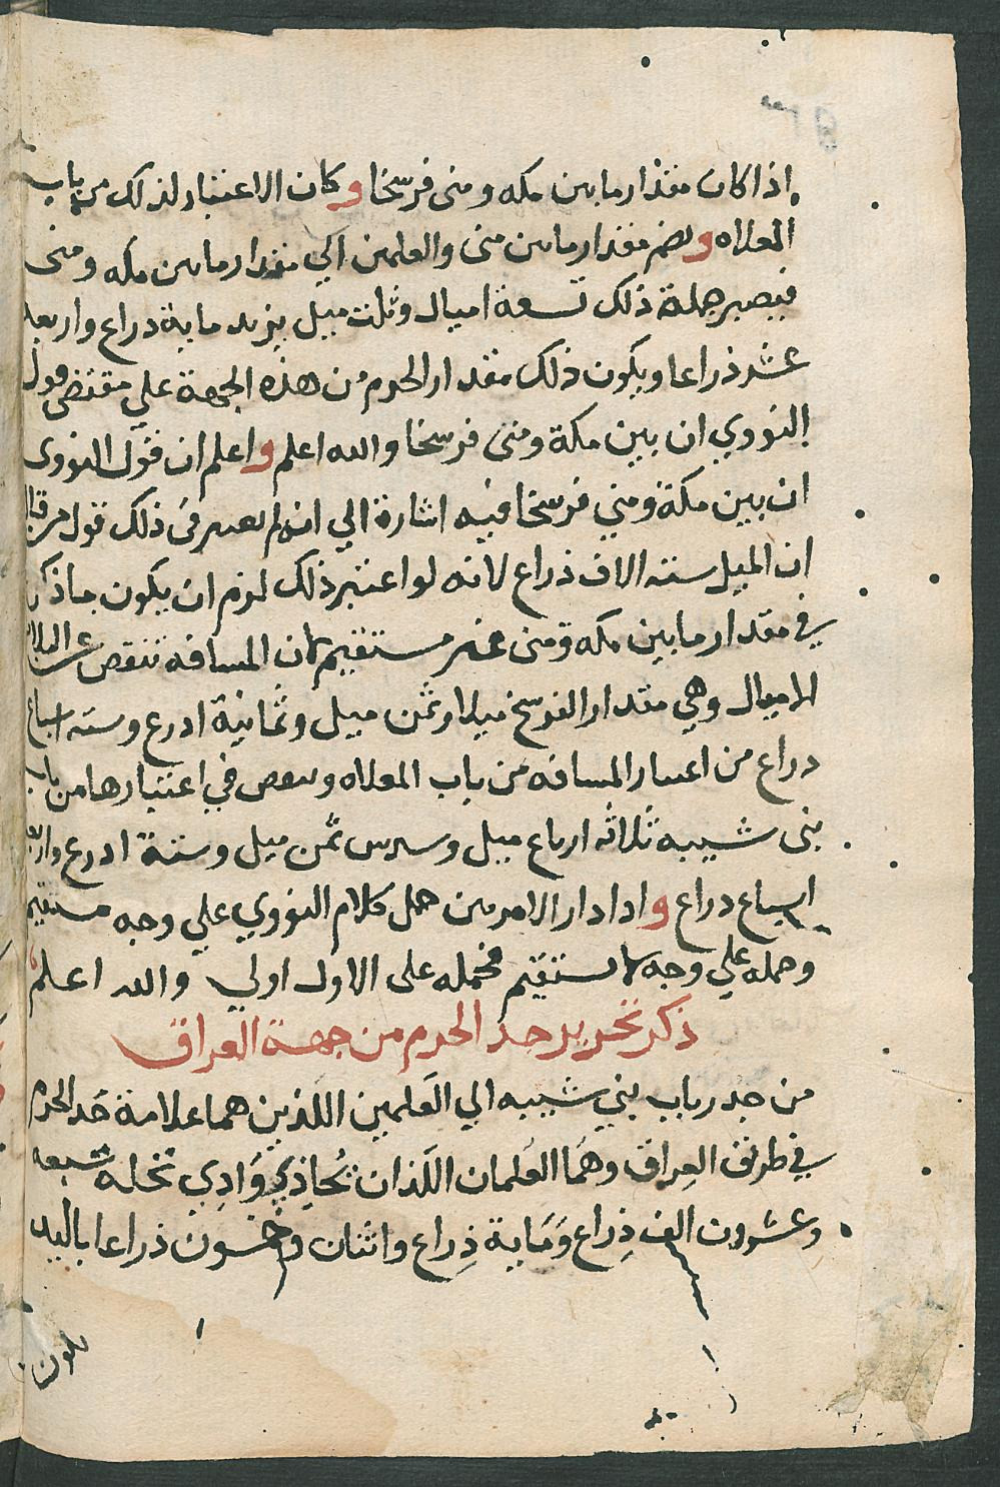 اذا كان مقدار ما بين مكه ومنى فرسخا وكان الاعتبار لذلك من باب
المعلاه وضم مقدار مابين منى والعلمين الي مقدار مابين مكه ومنى
فيصير جملة ذلك تسعة اميال وثلث ميل يزيد ماية دراع واربعة
عشر ذراعا ويكون ذلك مقدار الحرم من هذه الجهة علي مقتضى قول
النووي ان بين مكة ومنى فرسخا والله اعلم واعلم ان قول النووى
ان بين مكة ومني فرسخا فيه اشارة الي انه لم يعتبر في ذلك قول من قال
ان الميل سته الاف ذراع لانه لو اعتبر ذلك لزم ان يكون ما ذكره
في مقدار ما بين مكه ومنى غير مستقيم لان المسافه تنقص عن الثلاثه
الاميال وهي مقدار الفرسخ ميلا وثمن ميل وثمانية ادرع وسته اسباع
دراع من اعتبار المسافه من باب المعلاه وينقص في اعتبارها من باب
بنى شيبه ثلاثه ارباع ميل وسدس ثمن ميل وستة ادرع واربعه
اسباع دراع واذا دار الامر بين حمل كلام النووي علي وجه مستقيم
وحمله علي وجه لا يستقيم فحمله على الاول اولي والله اعلم
ذكر تحديد حد الحرم من جهة العراق
من جدر باب بني شيبه الي العلمين اللذين هما علامة حد الحرم
في طريق العراق وهما العلمان اللذان بحاذي وادي نخله سبعه
وعشرون الف ذراع وماية ذراع واثنان وخمسون ذراعا باليد